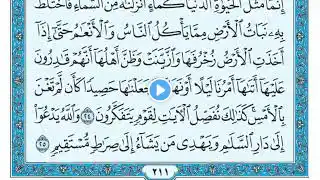 إِنَّمَا مَثَلُ الْحَيَوٰةِ الدُّنْيَا كَمَاءٍ أَنزَلْنَٰهُ مِنَ السَّمَاءِ فَاخْتَلَطَ
بِهِۦ نَبَاتُ الْأَرْضِ مِمَّا يَأْكُلُ النَّاسُ وَالْأَنْعَٰمُ حَتَّىٰ إِذَا
أَخَذَتِ الْأَرْضُ زُخْرُفَهَا وَازَّيَّنَتْ وَظَنَّ أَهْلُهَا أَنَّهُمْ قَٰدِرُونَ
عَلَيْهَا أَتَىٰهَا أَمْرُنَا لَيْلًا أَوْ نَهَارًا فَجَعَلْنَٰهَا حَصِيدًا كَأَن لَّمْ تَغْنَ
بِالْأَمْسِ كَذَٰلِكَ نُفَصِّلُ الْآيَٰتِ لِقَوْمٍ يَتَفَكَّرُونَ ٢٤ وَاللَّهُ يَدْعُوٓا۟
إِلَىٰ دَارِ السَّلَٰمِ وَيَهْدِى مَن يَشَاءُ إِلَىٰ صِرَٰطٍ مُّسْتَقِيمٍ ٢٥
٢١١